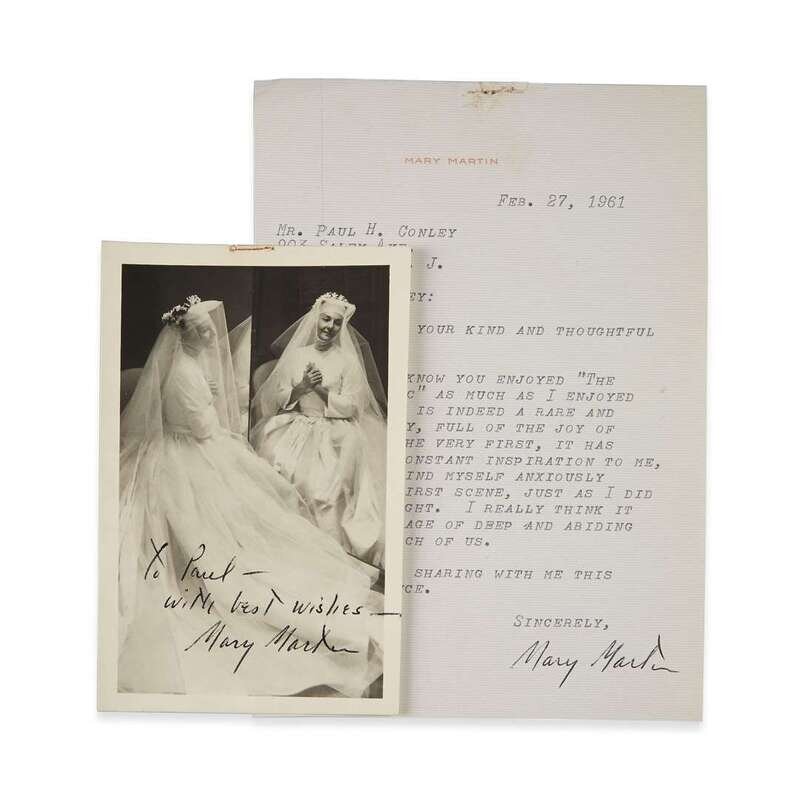 MARY MARTIN
FEB. 27, 1961
MR. PAUL H. CONLEY
903 SALEM AVE
J.
EY:
YOUR KIND AND THOUGHTFUL
KNOW YOU ENJOYED "THE
C" AS MUCH AS I ENJOYED
IS INDEED A RARE AND
Y, FULL OF THE JOY OF
HE VERY FIRST, IT HAS
ONSTANT INSPIRATION TO ME,
IND MYSELF ANXIOUSLY
IRST SCENE, JUST AS I DID
GHT. I REALLY THINK IT
AGE OF DEEP AND ABIDING
CH OF US.
SHARING WITH ME THIS
CE.
SINCERELY,
Mary Martin
To Paul —
with best wishes —
Mary Martin